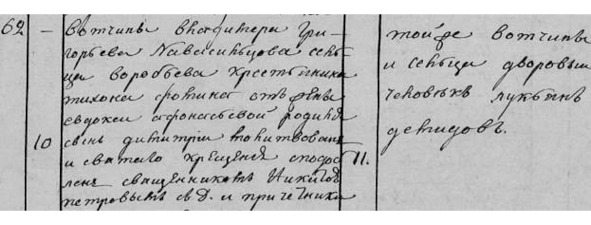 62 –
вотчины владимера Гри–
горьева Навасильцова сель–
ца воробьева крестьянина
тихона фотина отъ жены
евдокеи афонасьевой родился
сынъ димитрiи молитвованъ
10
и святаго крещения сподоб
11.
ленъ священникомъ Никитой
петровымъ с Д. и причетники
тойже вотчины
и сельца дворовыи
человекъ лукьянъ
демидовъ.